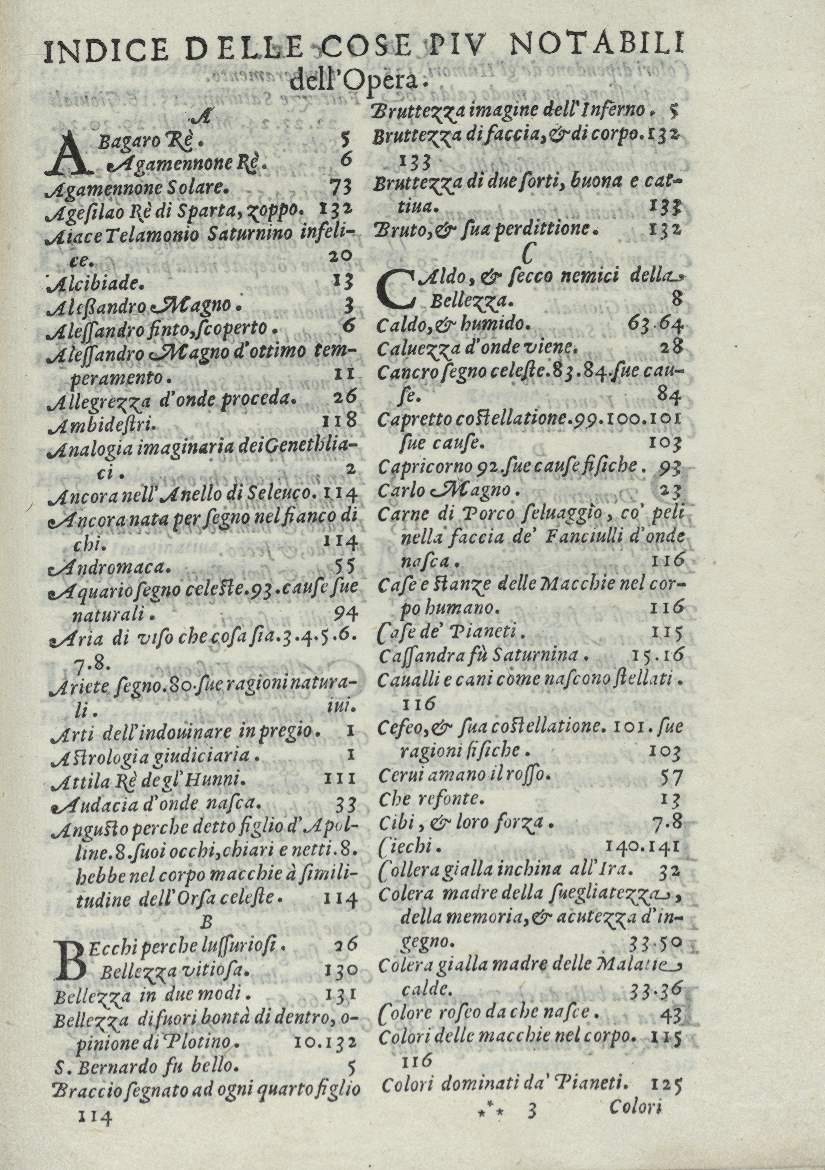 INDICE DELLE COSE PIV NOTABILI
dell'Opera.
A
ABagaro Rè. 5
Agamennone Rè. 6
Agamennone Solare. 73
Ageſilao Rè di Sparta, zoppo. 132
Aiace Telamonio Saturnino infeli-
ce. 20
Alcibiade. 13
Aleßandro Magno. 3
Aleſſandro finto, ſcoperto. 6
Aleſſandro Magno d'ottimo tem-
peramento. 11
Allegrezza d'onde proceda. 26
Ambideſtri. 118
Analogia imaginaria dei Genethlia-
ci. 2
Ancora nell'Anello di Seleuco. 114
Ancora nata per ſegno nel fianco di
chi. 114
Andromaca. 55
Aquario ſegno celeſte. 93. cauſe ſue
naturali. 94
Aria di viſo che coſa ſia. 3. 4. 5. 6.
7. 8.
Ariete ſegno. 80. ſue ragioni natura-
li. iui.
Arti dell'indouinare in pregio. 1
Aſtrologia giudiciaria. 1
Attila Rè degl'Hunni. 111
Audacia d'onde naſca. 33
Anguſto perche detto figlio d'Apol-
line. 8. ſuoi occhi, chiari e netti. 8.
hebbe nel corpo macchie à ſimili-
tudine dell'Orſa celeſte. 114
B
BEcchi perche luſſurioſi. 26
Bellezza vitioſa. 130
Bellezza in due modi. 131
Bellezza di fuori bontà di dentro, o-
pinione di Plotino. 10. 132
S. Bernardo fu bello. 5
Braccio ſegnato ad ogni quarto figlio
114
Bruttezza imagine dell'Inferno. 5
Bruttezza di faccia, & di corpo. 132
133
Bruttezza di due ſorti, buona e cat-
tiua. 133
Bruto, & ſua perdittione. 132
C
CAldo, & ſecco nemici della
Bellezza. 8
Caldo, & humido. 63. 64
Caluezza d'onde viene. 28
Cancro ſegno celeſte. 83. 84. ſue cau-
ſe. 84
Capretto coſtellatione. 99. 100. 101
ſue cauſe. 103
Capricorno 92. ſue cauſe fiſiche. 93
Carlo Magno. 23
Carne di Porco ſeluaggio, co' peli
nella faccia de' Fanciulli d'onde
naſca. 116
Caſe e ſtanze delle Macchie nel cor-
po humano. 116
Caſe de' Pianeti. 115
Caſſandra fù Saturnina. 15. 16
Caualli e cani come naſcono ſtellati.
116
Cefeo, & ſua coſtellatione. 101. ſue
ragioni fiſiche. 103
Cerui amano il roſſo. 57
Che refonte. 13
Cibi, & loro forza. 7. 8
Ciechi. 140. 141
Collera gialla inchina all'Ira. 32
Colera madre della ſuegliatezza,
della memoria, & acutezza d'in-
gegno. 33. 50
Colera gialla madre delle Malatie
calde. 33. 36
Colore roſeo da che naſce. 43
Colori delle macchie nel corpo. 115
116
Colori dominati da' Pianeti. 125
*** 3 Colori